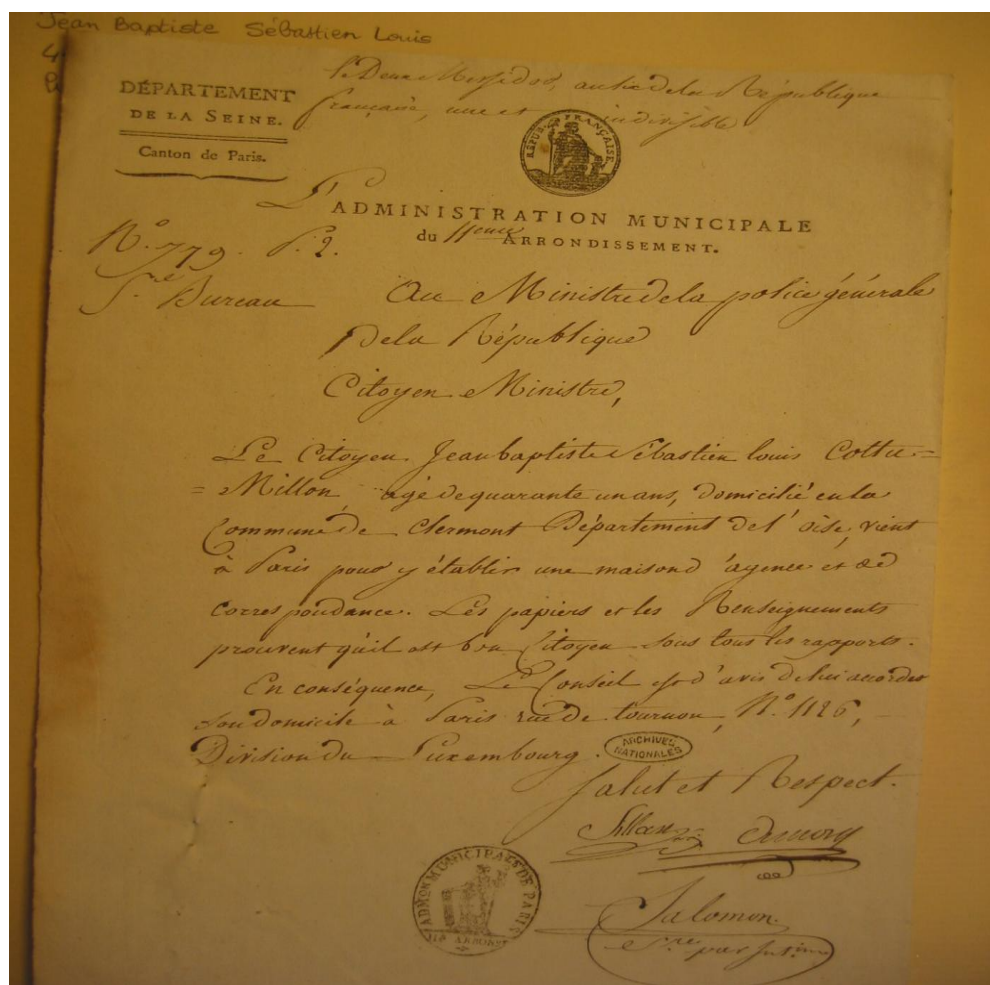 Jean Baptiste Sébastien Louis
4
DÉPARTEMENT
DE LA SEINE.
Canton de Paris.
Le Deux Messidor, an six de la République
française, une et indivisible
RÉPUB. FRANÇAISE
L'ADMINISTRATION MUNICIPALE
du 11eme ARRONDISSEMENT.
N.o 779. P. 2.
Bureau
Au Ministre de la police générale
de la République
Citoyen Ministre,
Le Citoyen Jean baptiste Sébastien louis Cottu=
=Millon, agé de quarante un ans, domicilié en la
Commune de Clermont Département de l'oise, vient
à Paris pour y établir une maison d'agence et de
correspondance. Les papiers et les Renseignements
prouvent qu'il est bon Citoyen sous tous les rapports.
En conséquence, Le Conseil est d'avis de lui accorder
son domicile à Paris rue de tournon, N.o 1126,
Division du Luxembourg.
ARCHIVES
NATIONALES
Salut et Respect.
ADMON MUNICIPALE DE PARIS
Salomon